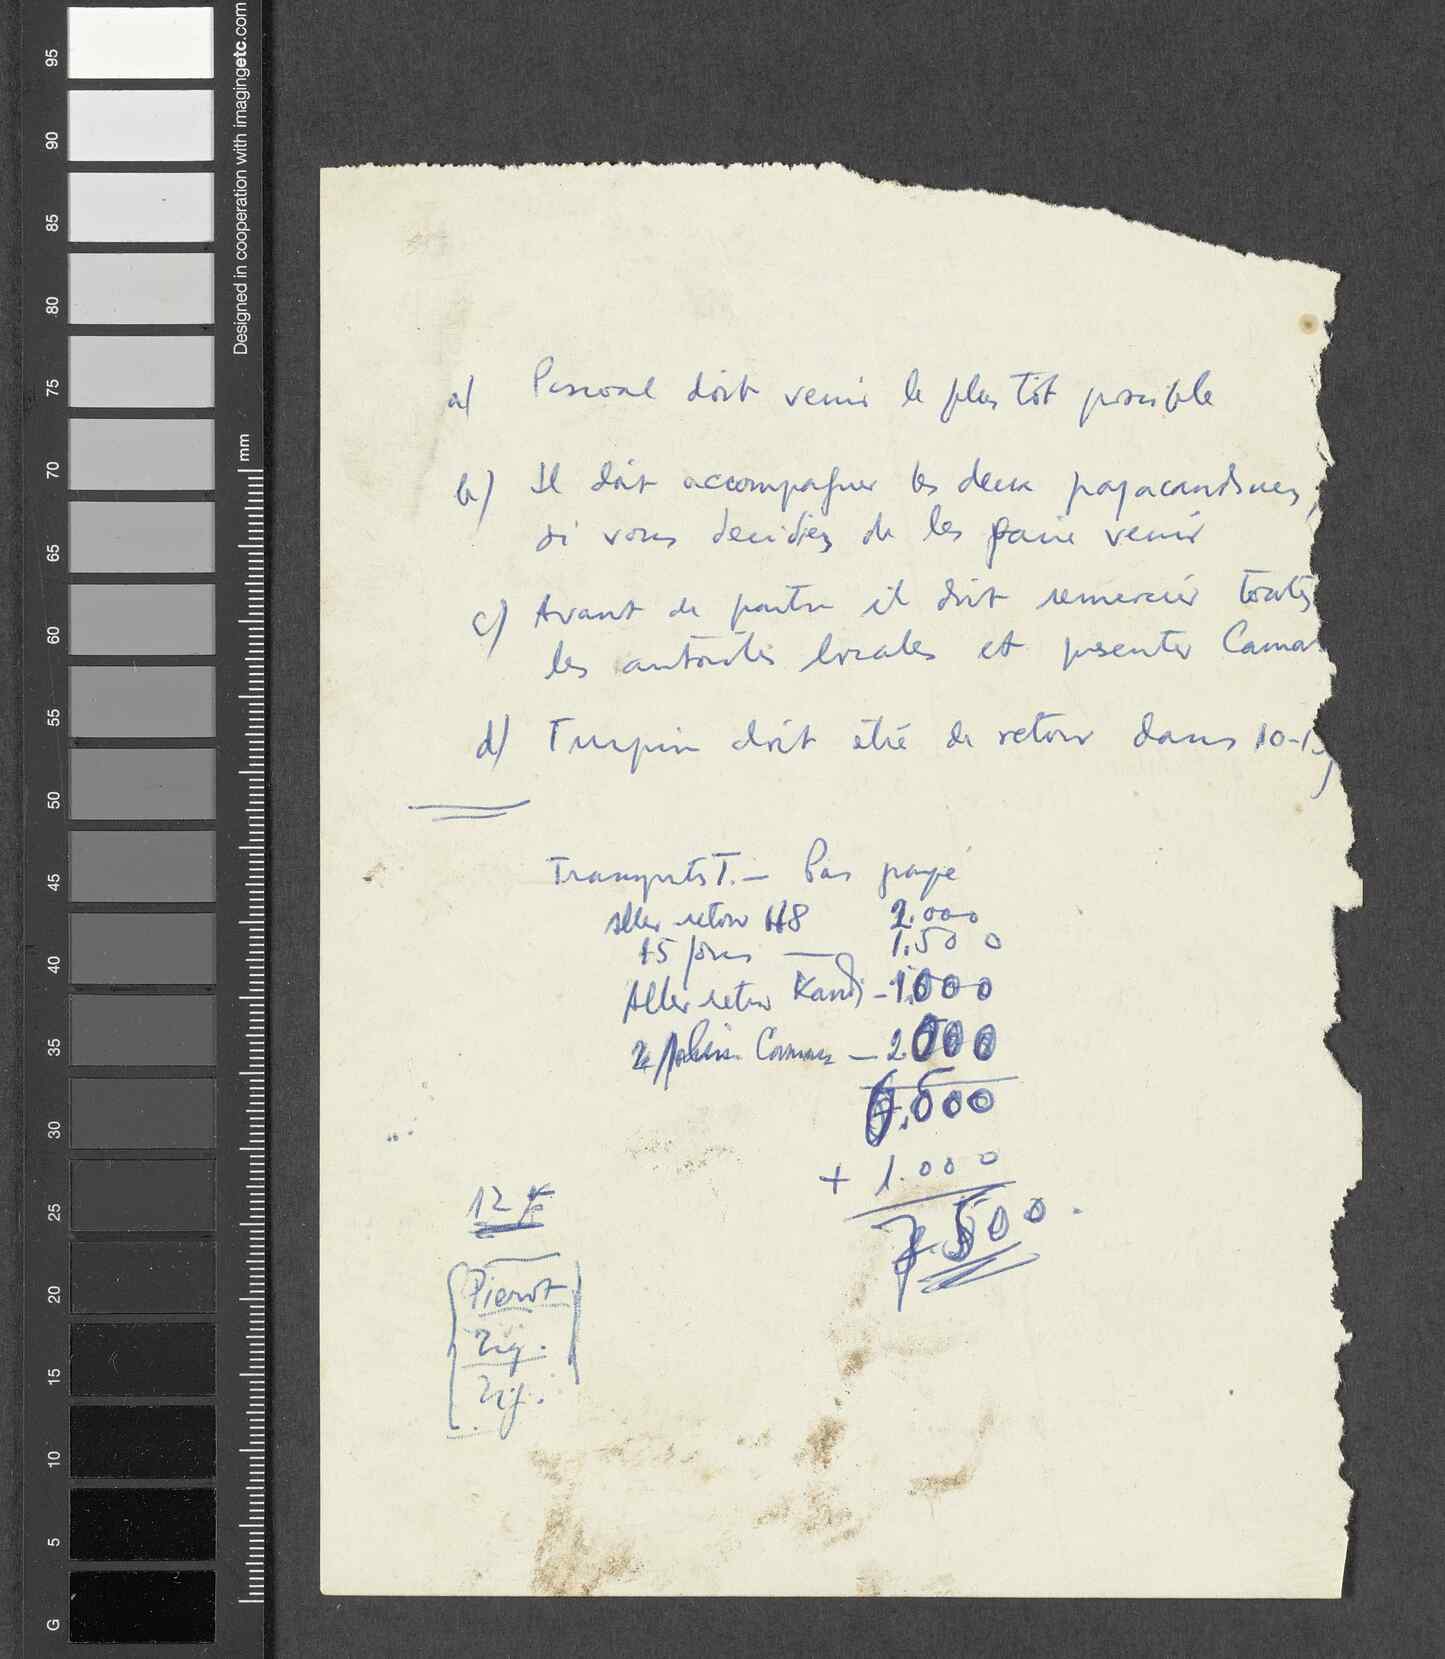 Designed in cooperation with imagingetc.com
mm
95
90
85
80
75
70
65
60
55
50
45
40
35
30
25
20
15
10
5
G
a) Pascoal doit venir le plus tôt possible
b) Il doit accompagner les deux
si vous decidiez de les faire venir
c) Avant de partir il doit remercier toutes
les autorités locales et presenter Camar
d) Turpin doit être de retour dans 10-15
Transports T. — Pas payé
Aller retour 2.000
15 jours — 1.500
Aller retour Kandi - 1.000
2 — 2.000
6.500
+ 1.000
7.500.
12
Pierrot